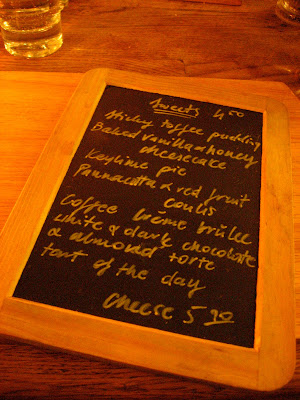 Sweets 4.50
Sticky toffee pudding
Baked vanilla & honey
cheesecake
Keylime pie
Pannacotta & red fruit
coulis
Coffee crème brûlée
white & dark chocolate
& almond torte
tart of the day
cheese 5.20